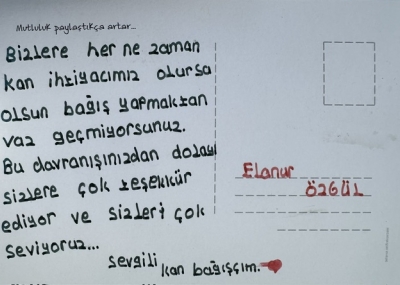 Mutluluk paylaştıkça artar...
Bizlere her ne zaman
kan ihtiyacımız olursa
olsun bağış yapmaktan
vaz geçmiyorsunuz.
Bu davranışınızdan dolayı
sizlere çok teşekkür
ediyor ve sizleri çok
seviyoruz...
sevgili kan bağışçım.
Elanur
ÖZGÜL